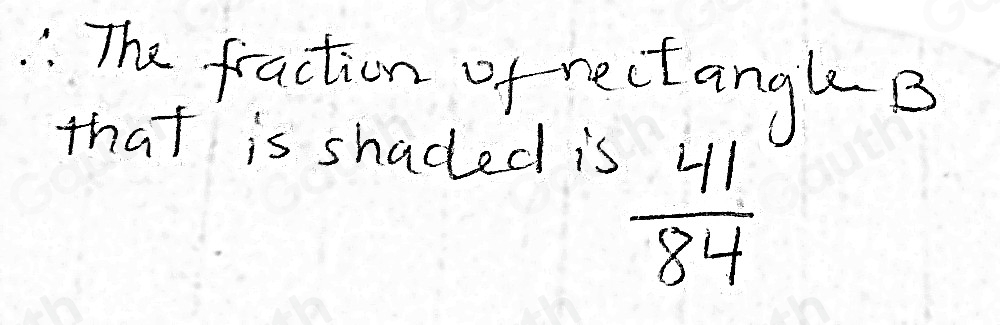 ∴ The fraction of rectangle B
that is shaded is 41/84